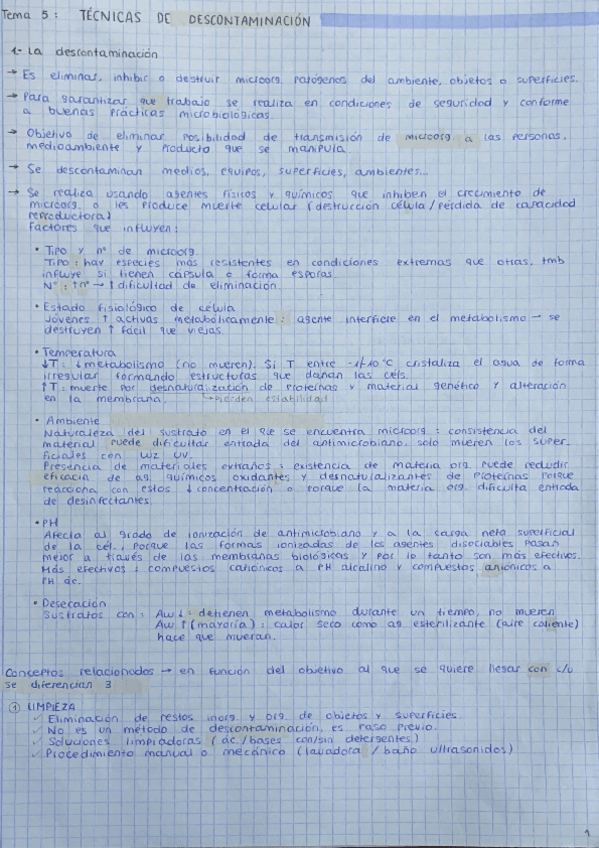 Tema 5: TÉCNICAS DE DESCONTAMINACIÓN
1- La descontaminación
→ Es eliminar, inhibir o destruir microorg. patógenos del ambiente, objetos o superficies.
→ Para garantizar que trabajo se realiza en condiciones de seguridad y conforme
a buenas prácticas microbiológicas.
→ Objetivo de eliminar posibilidad de transmisión de microorg. a las personas,
medioambiente y producto que se manipula
→ Se descontaminan medios, equipos, superficies, ambientes...
→ Se realiza usando agentes físicos y químicos que inhiben el crecimiento de
microorg. o les produce muerte celular (destrucción célula / pérdida de capacidad
reproductora)
Factores que influyen:
• Tipo y nº de microorg.
Tipo: hay especies más resistentes en condiciones extremas que otras, tmb
influye si tienen cápsula o forma esporas.
Nº: ↑nº → ↑ dificultad de eliminación
• Estado fisiológico de célula
Jóvenes ↑ activas metabólicamente: agente interfiere en el metabolismo → se
destruyen ↑ fácil que viejas.
• Temperatura
↓T: ↓metabolismo (no mueren). Si T entre ºC cristaliza el agua de forma
irregular formando estructuras que dañan las céls.
↑T: muerte por desnaturalización de proteínas y material genético y alteración
en la membrana. → pierden estabilidad
• Ambiente
Naturaleza del sustrato en el que se encuentra microorg: consistencia del
material puede dificultar entrada del antimicrobiano. solo mueren los super
ficiales con luz UV.
Presencia de materiales extraños: existencia de materia org. puede reducir
eficacia de ag. químicos oxidantes y desnaturalizantes de proteínas porque
reacciona con estos ↓ concentración o porque la materia org. dificulta entrada
de desinfectantes.
• PH
Afecta al grado de ionización de antimicrobiano y a la carga neta superficial
de la cél., porque las formas ionizadas de los agentes disociables pasan
mejor a través de las membranas biológicas y por lo tanto son más efectivos.
Más efectivos: compuestos catiónicos a PH alcalino y compuestos aniónicos a
PH ác.
• Desecación
Sustratos con: Aw ↓: detienen metabolismo durante un tiempo, no mueren
Aw ↑ (mayoría): calor seco como ag esterilizante (aire caliente)
hace que mueran.
Conceptos relacionados → en función del objetivo al que se quiere llegar con c/u
se diferencian 3
① LIMPIEZA
✓ Eliminación de restos inorg y org de objetos y superficies.
✓ No es un método de descontaminación, es paso previo.
✓ Soluciones limpiadoras (ác./bases con/sin detergentes)
✓ Procedimiento manual o mecánico (lavadora / baño ultrasonidos)
1